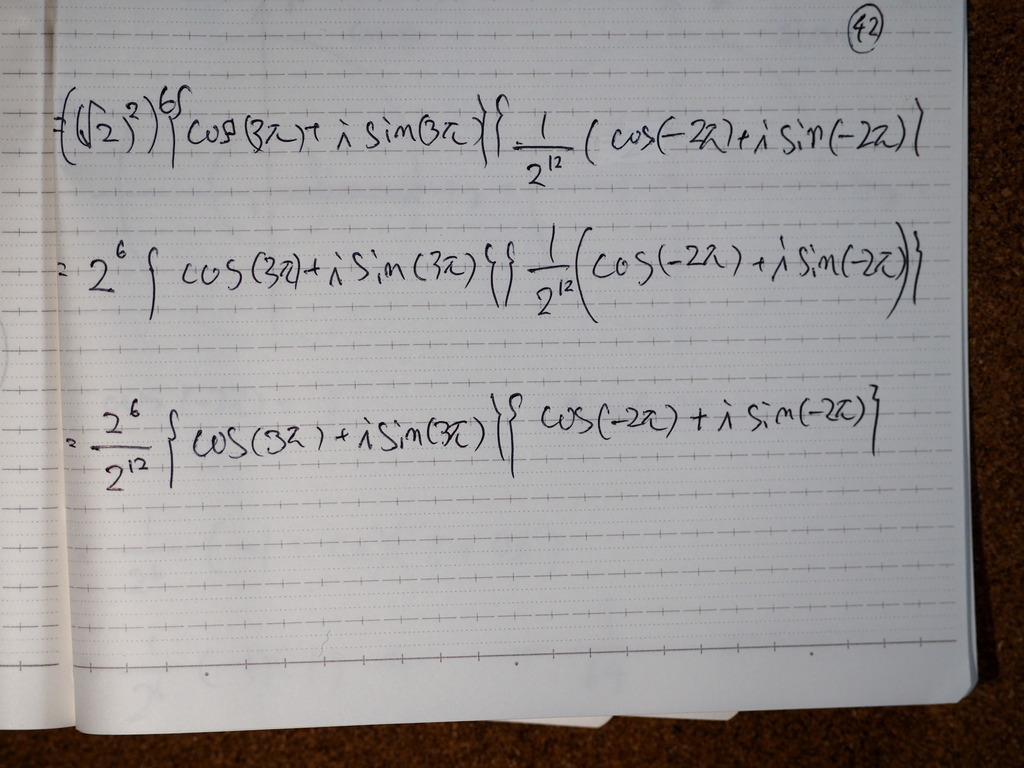 42
=((√2)²)⁶{cos(3π)+i sin(3π)}{1/2¹²(cos(-2π)+i sin(-2π)}
=2⁶{cos(3π)+i sin(3π)}{1/2¹²(cos(-2π)+i sin(-2π))}
=2⁶/2¹²{cos(3π)+i sin(3π)}{cos(-2π)+i sin(-2π)}